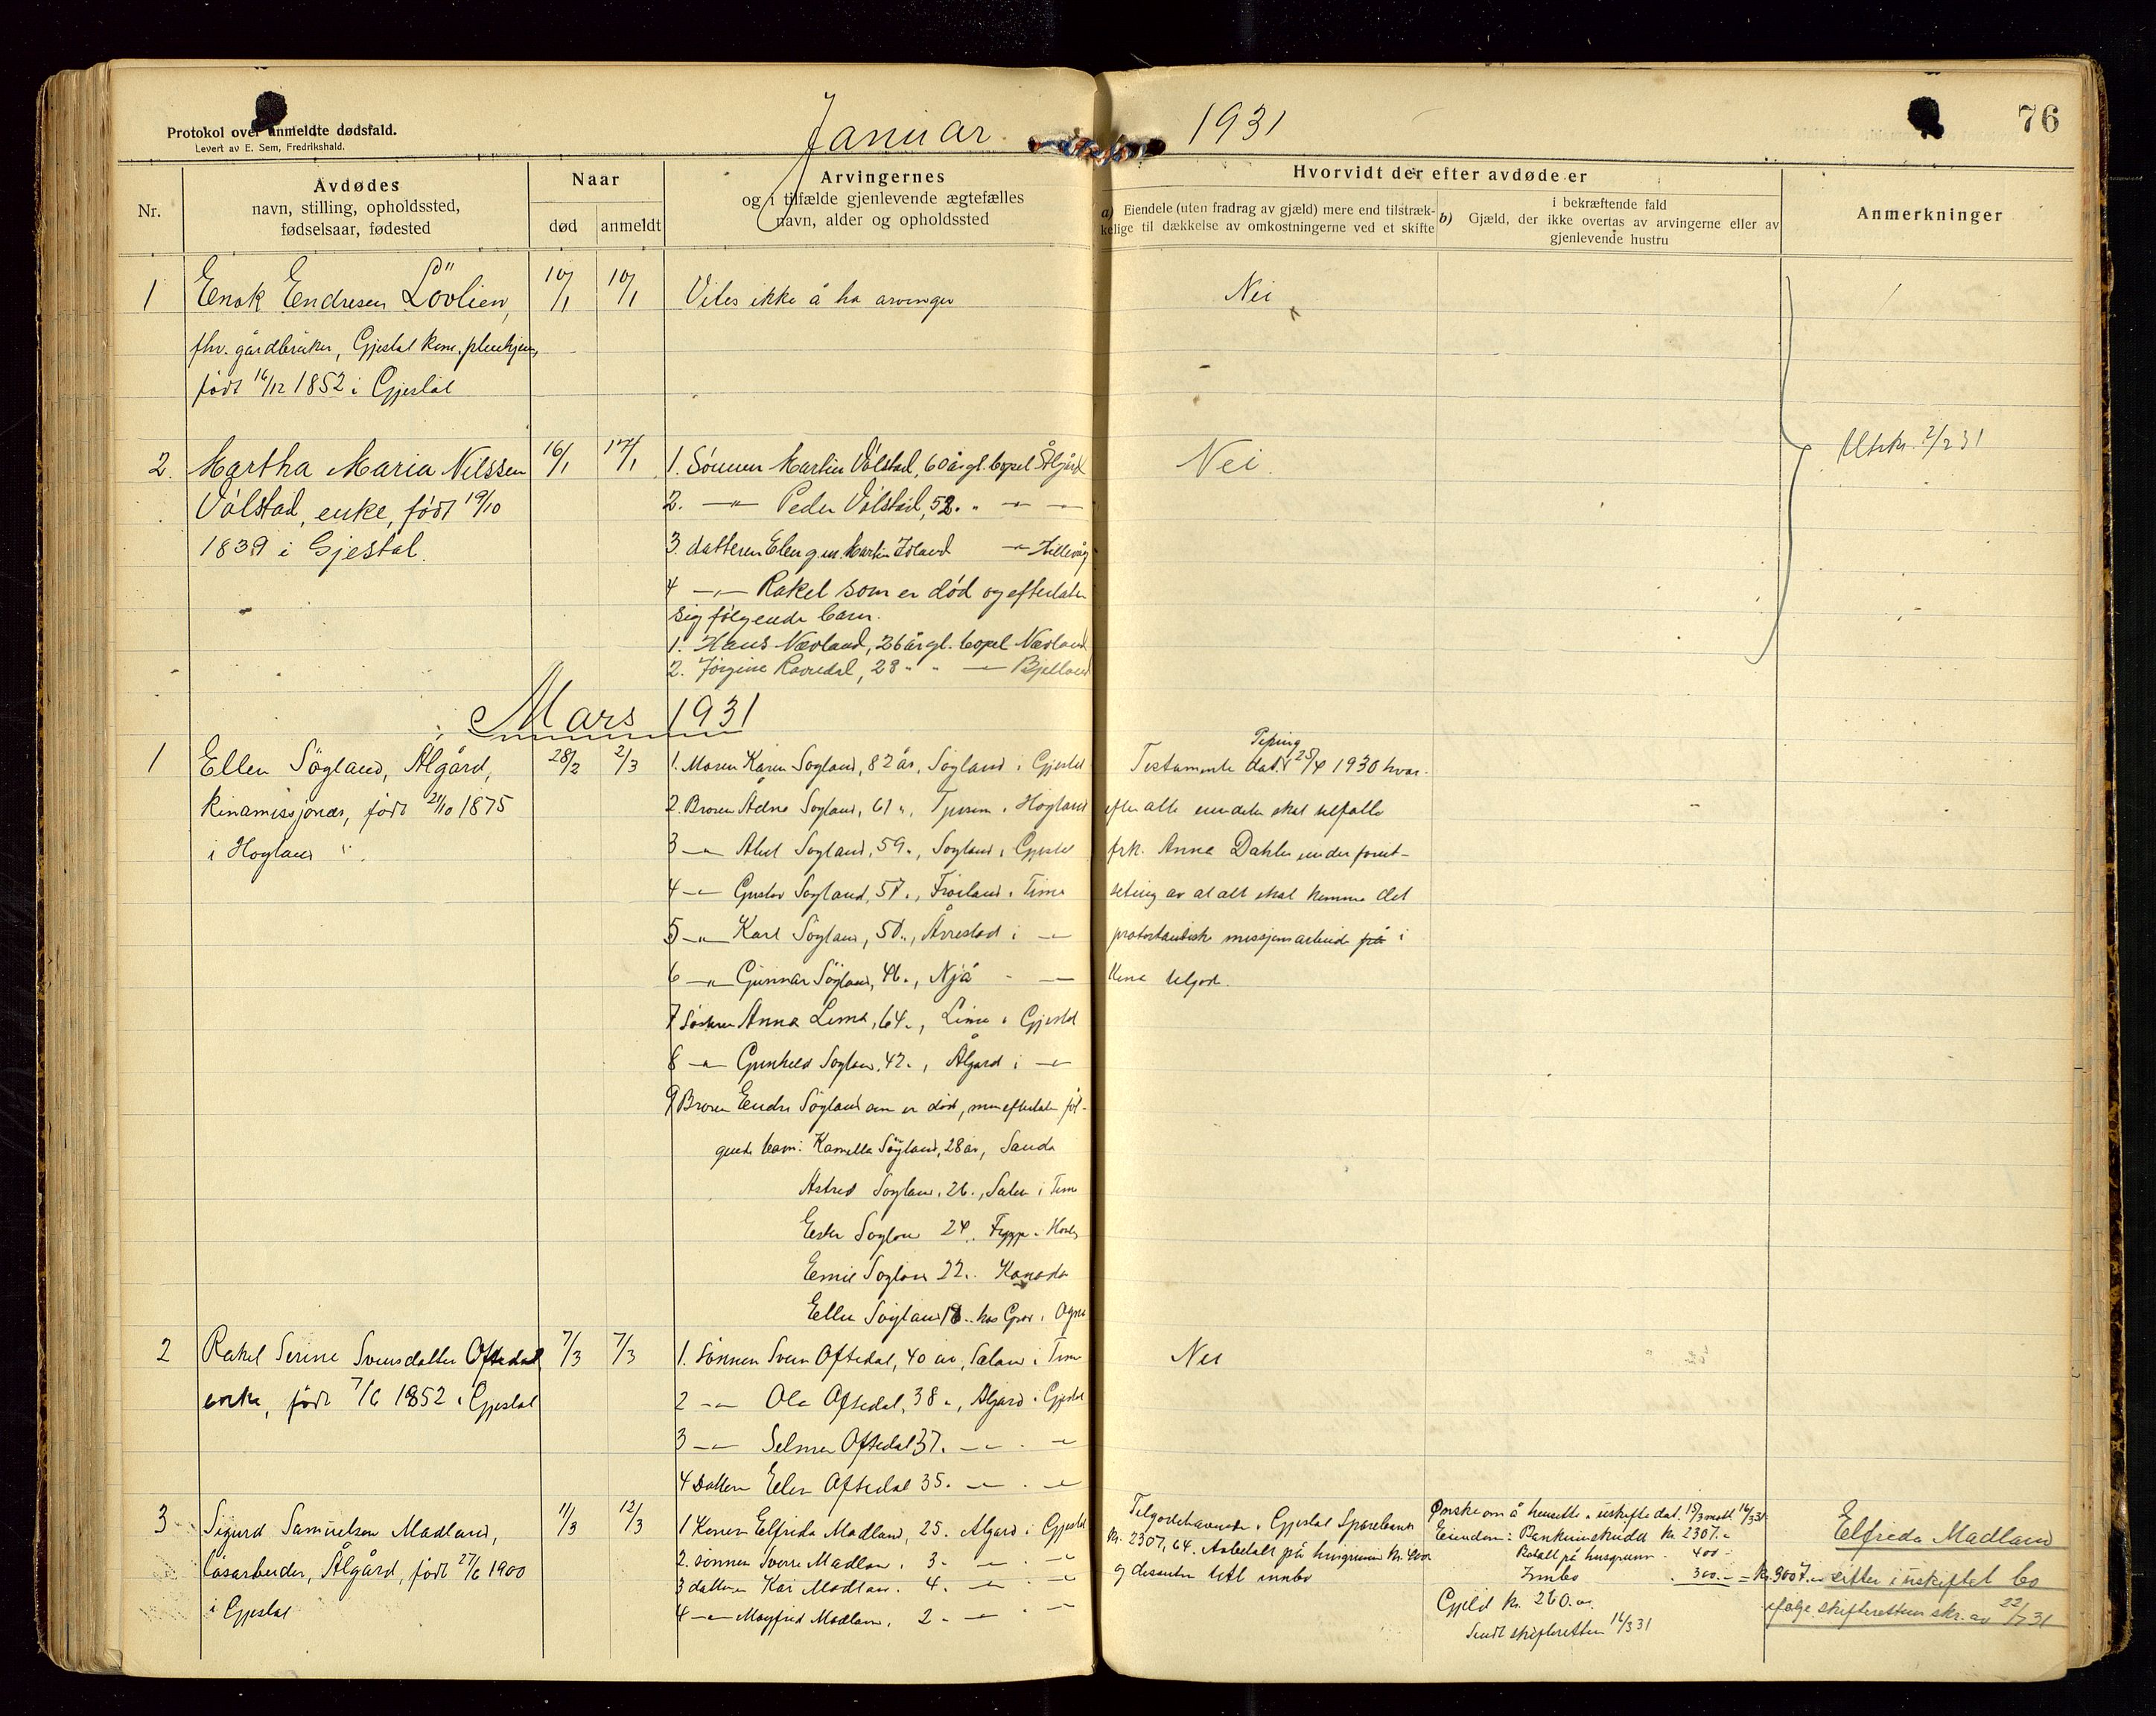 Protokol over anmeldte dødsfald.
Levert av E. Sem, Fredrikshald.
Januar 1931
76
Nr.
Avdødes
navn, stilling, opholdssted,
fødselsaar, fødested
Naar
død
anmeldt
Arvingernes
og i tilfælde gjenlevende ægtefælles
navn, alder og opholdssted
Hvorvidt der efter avdøde er
a) Eiendele (uten fradrag av gjæld) mere end tilstræk-
kelige til dækkelse av omkostningerne ved et skifte
b) i bekræftende fald
Gjæld, der ikke overtas av arvingerne eller av
gjenlevende hustru
Anmerkninger
1 Enok Endresen Lövlien, 10/1 10/1 Vites ikke å ha arvinger Nei
fhv. gårdbruker, Gjestal kom. pleiehjem,
født 16/12 1852 i Gjestal
2. Martha Maria Nilssen 16/1 17/1 1. Sønnen Martin Vålstad, 60 år gl. bopel Ålgård Nei.
Utskr. 2/2 31
Vålstad, enke, født 19/10 2. —"— Peder Vålstad, 52. " — —
1839 i Gjestal. 3. datteren Elen g.m. Martin — Hillevåg
4 —"— Rakel som er død og efterlater
sig følgende barn.
1. Hans Nævland, 26 år gl. bopel Nævland
2. Jørgine Ravndal, 28 " " — Bjelland
Mars 1931
1 Ellen Sögland, Ålgård, 28/2 2/3 1. Moren Karen Sögland, 82 år, Sögland i Gjestal
Kinamissjonær, født 21/10 1875 2. Broren Ådne Sögland, 61 ", i Högland
i Hogland 3 —"— Abel Sögland, 59 ", Sögland i Gjestal
4 —"— Gustav Sögland, 57 ", Fröiland i Time
5 —"— Karl Sögland, 50 ", Årrestad i —"—
6 —"— Gunnar Sögland, 46 ", Njå " —"—
7 Søsteren Anna Lima, 64 ", Lima i Gjestal
8 —"— Gunhild Sögland, 42 ", Ålgard i —"—
9 Broren Endre Sögland som er död, men efterlater föl-
gende barn: Kamilla Sögland, 28 år, Sanda
Astrid Sögland, 26 ", Salen i Time
Ester Sögland 24 "
Emil Sögland 22 " Kanada
Ellen Sögland 18 " hos i Ogna
Peping
Testamente dat. 25/4 1930 hvor-
efter alle eiendeler skal tilfalle
frk. Anna Dahle under forut-
setning av at alt skal komme det
protestantiske missjonsarbeide på i
Kina tilgode.
2 Rakel Serine Svensdatter Oftedal 7/3 7/3 1. Sönnen Sven Oftedal, 40 år, Salen i Time Nei
enke, født 7/6 1852 i Gjestal 2 —"— Ole Oftedal, 38 ", Ålgard i Gjestal
3 —"— Selmer Oftedal 37 " —"— " —"—
4 Datteren Elen Oftedal 35 " —"— " —"—
3 Sigurd Samuelsen Madland, 11/3 12/3 1 Konen Elfrida Madland, 25 " Algard i Gjestal
løsarbeider, Ålgård, født 27/6 1900 2. sönnen Sverre Madland, 3 " —"— " —"—
i Gjestal 3 datteren Kari Madland, 4 " —"— " —"—
4 —"— Magfrid Madland, 2 " —"— " —"—
Tilgodehavende i Gjestal Sparebank
kr. 2307,64. Anbetalt på husgrunn kr. 400
og dessuten litt innbo
Ønske om å hensitte i uskifte dat. 15/3 mott. 16/3 31
Eiendom: Bankinnskudd kr. 2307.-
Betalt på husgrunn " 400.-
Innbo " 300.- = Kr. 3007.-
Gjeld kr. 260.00.
Sendt skifteretten 16/3 31
Elfrida Madland
sitter i uskiftet bo
ifølge skifterettens skr. av 22/7 31